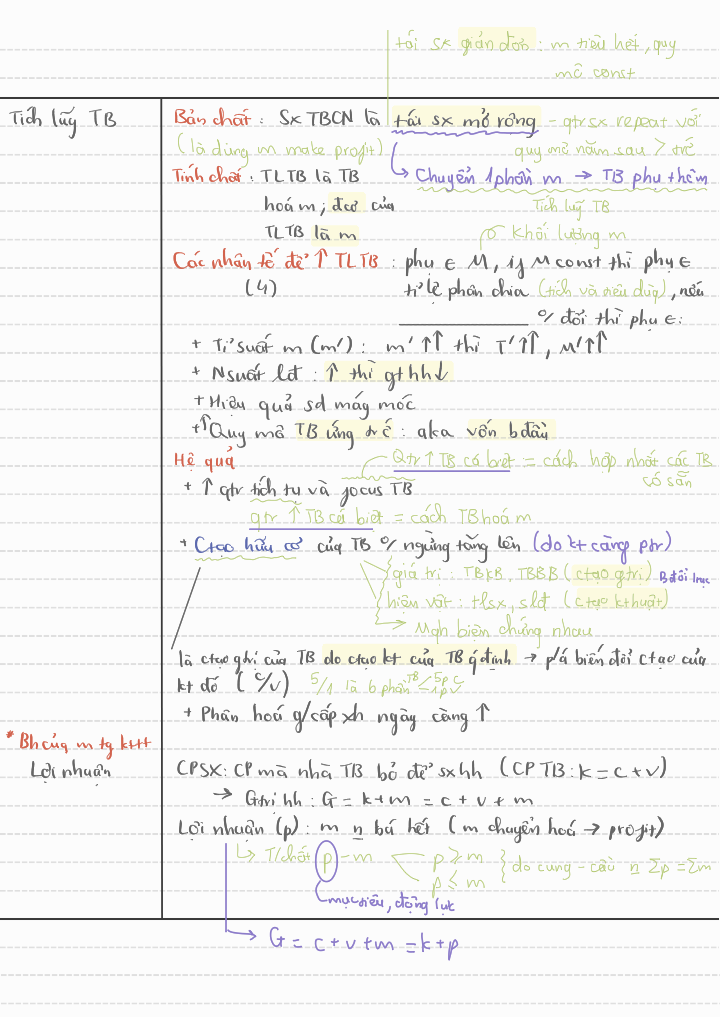 tái sx giản đơn : m tiêu hết, quy
mô const
Tích luỹ TB
Bản chất : SX TBCN là tái sx mở rộng - qtr sx repeat với
(là dùng m make profit) quy mô năm sau > trc
Tính chất : TLTB là TB → Chuyển 1 phần m → TB phụ thêm
hoá m ; đcơ của Tích luỹ TB
TLTB là m Khối lượng m
Các nhân tố để ↑ TLTB : phụ ∈ M, if M const thì phụ ∈
(4) tỉ lệ phân chia (tích và tiêu dùng), nếu
% đổi thì phụ ∈ :
+ Tỉ suất m (m') : m' ↑↑ thì T' ↑↑, M' ↑↑
+ Nsuất lđ : ↑ thì gthh ↓
+ Hiệu quả sd máy móc
+ ↑ Quy mô TB ứng trc : aka vốn bđầu
Hệ quả Qtr ↑ TB cá biệt = cách hợp nhất các TB
có sẵn
+ ↑ qtr tích tụ và focus TB
qtr ↑ TB cá biệt = cách TB hoá m
+ Ctạo hữu cơ của TB % ngừng tăng lên (do kt càng ptr)
giá trị : TBKB, TBBB (ctạo gtrị)
hiện vật : tlsx, slđ (ctạo kthuật)
→ Mqh biện chứng nhau
là ctạo gtrị của TB do ctạo kt của TB qđịnh → p/á biến đổi ctạo của
kt đó (c/v) 5/1 là 6 phần TB = 5p c 1p v
+ Phân hoá g/cấp xh ngày càng ↑
* Bh của m tg ktttt
Lợi nhuận
CPSX : CP mà nhà TB bỏ để sxhh (CPTB : k = c + v)
→ Gtrị hh : G = k + m = c + v + m
Lợi nhuận (p) : m n bá hết (m chuyển hoá → profit)
↳ T/chất p - m p ≥ m
p ≤ m } do cung - cầu n Σp = Σm
mục tiêu, động lực
→ G = c + v + m = k + p